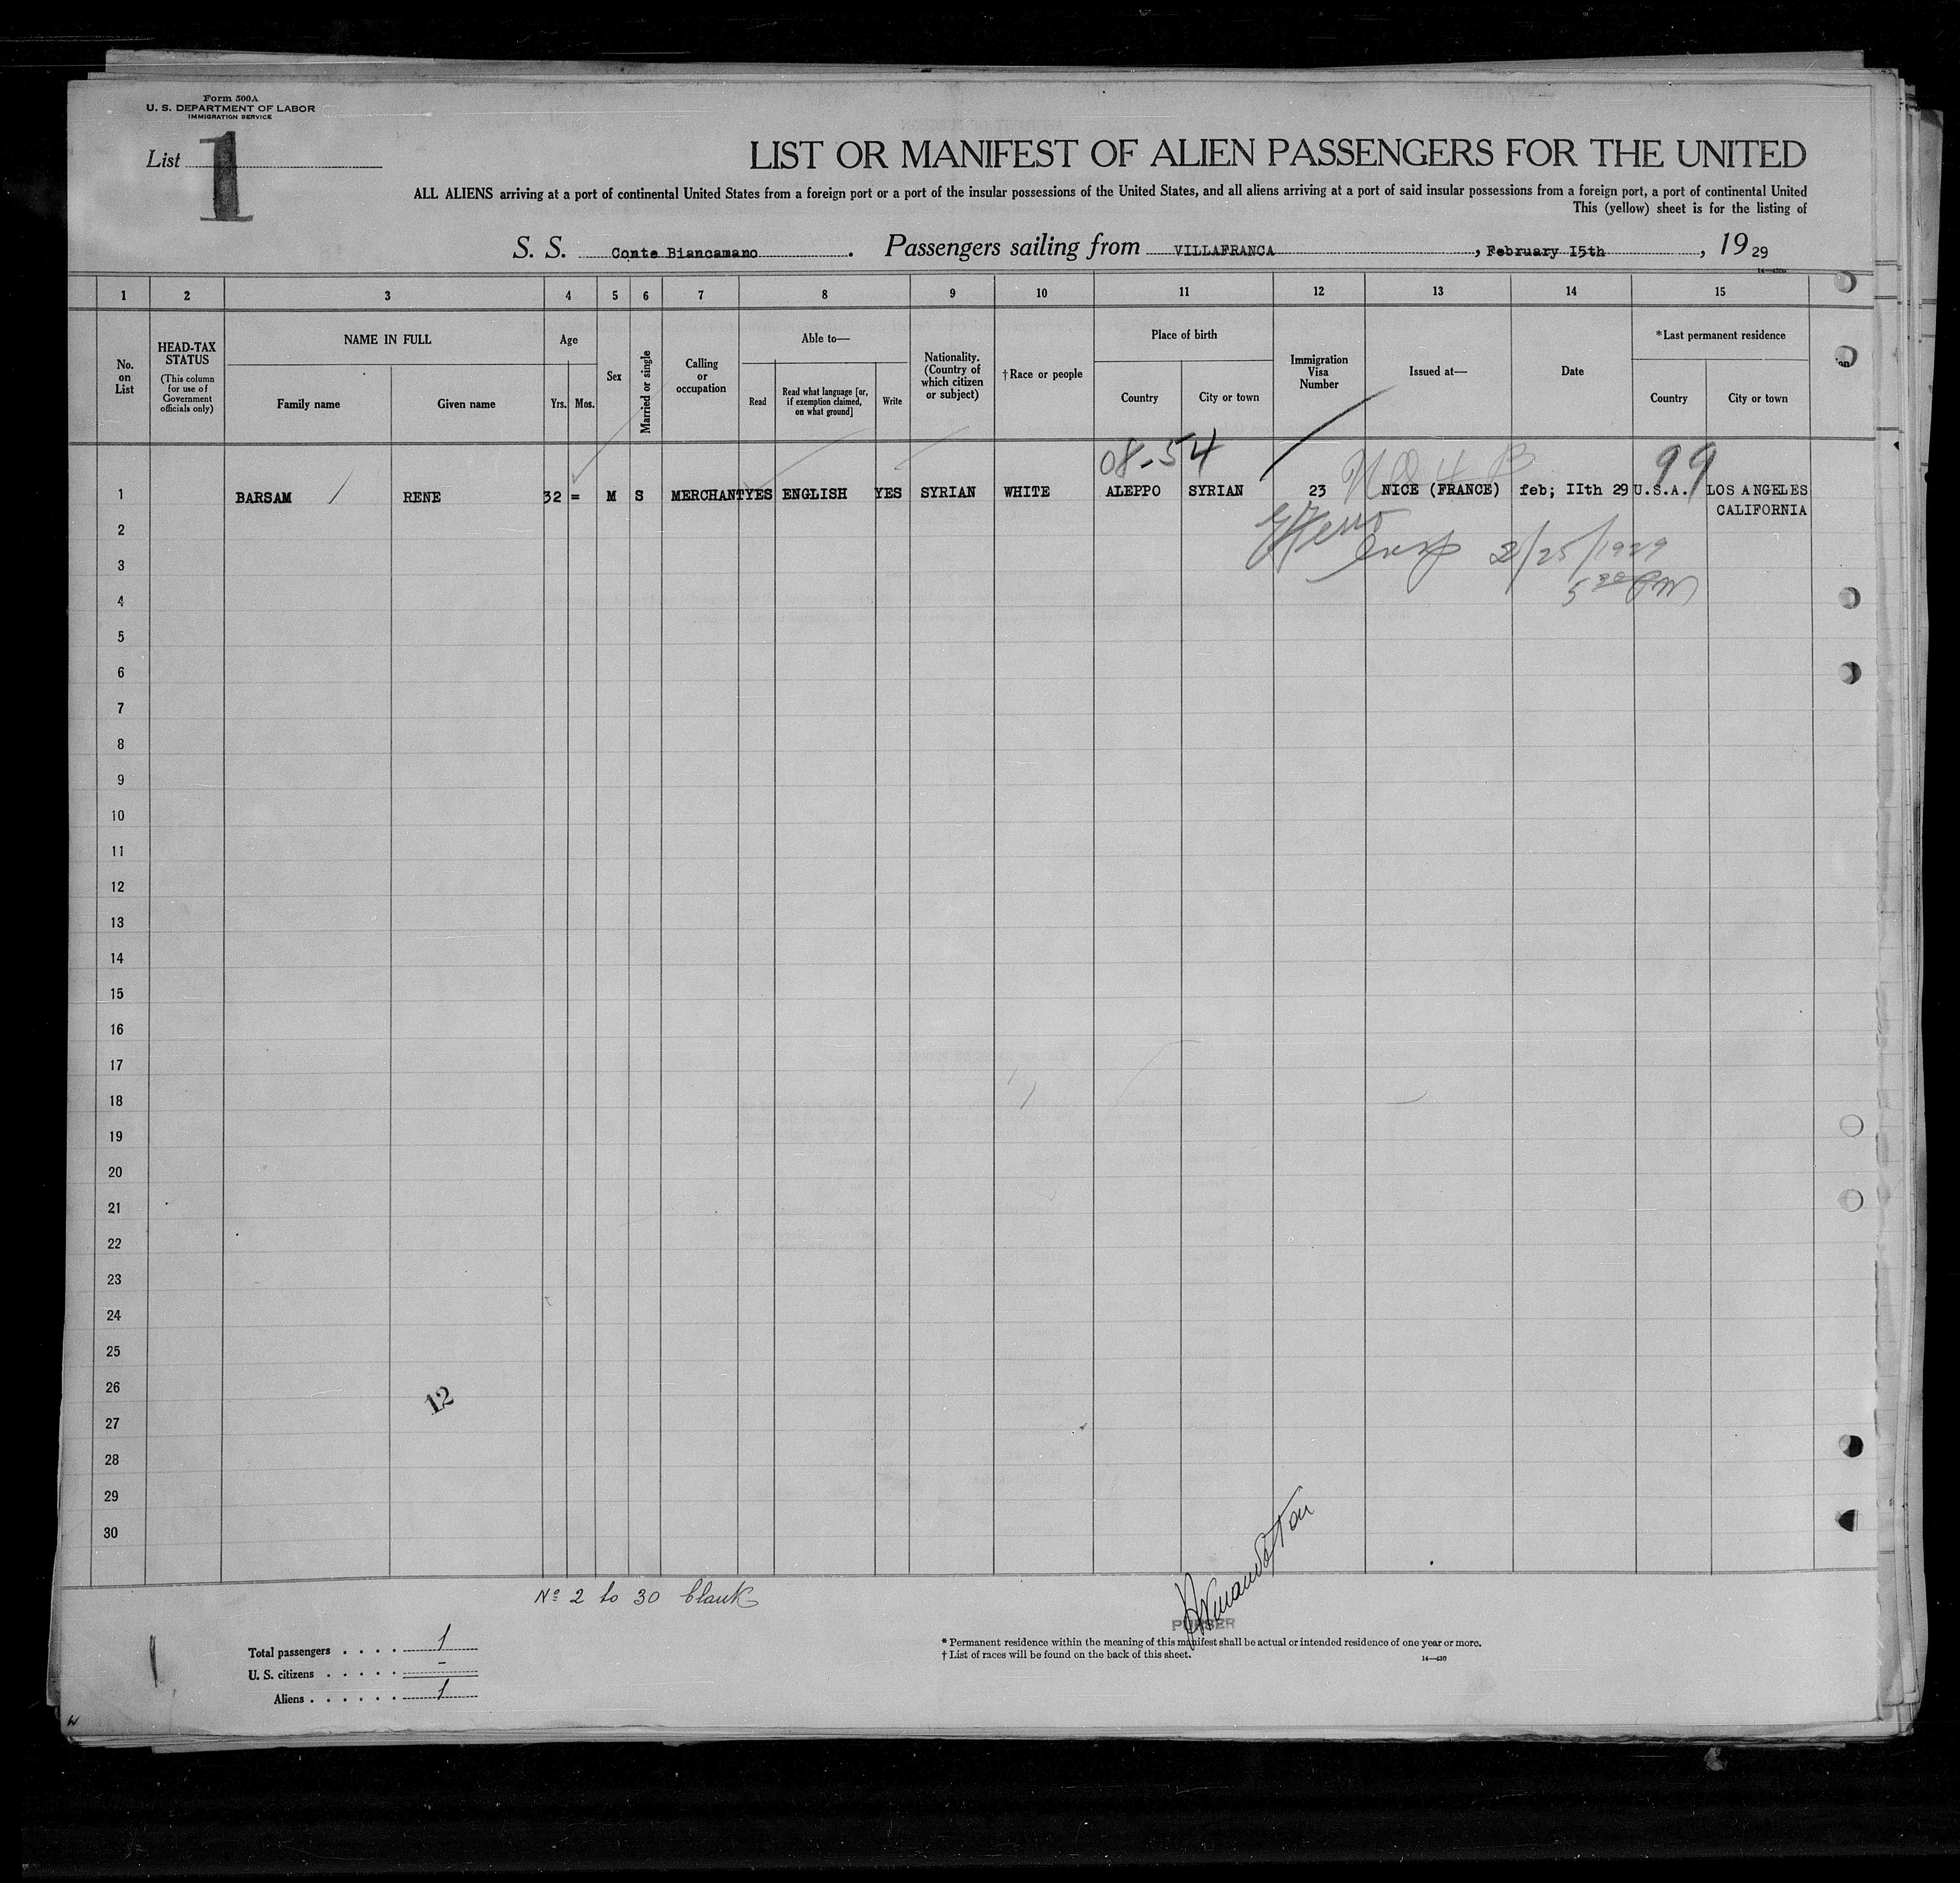 Form 500A
U. S. DEPARTMENT OF LABOR
IMMIGRATION SERVICE
List 1
LIST OR MANIFEST OF ALIEN PASSENGERS FOR THE UNITED
ALL ALIENS arriving at a port of continental United States from a foreign port or a port of the insular possessions of the United States, and all aliens arriving at a port of said insular possessions from a foreign port, a port of continental United
This (yellow) sheet is for the listing of
S. S. Conte Biancamano. Passengers sailing from VILLAFRANCA, February I5th, 19 29
1 2 3 4 5 6 7 8 9 10 11 12 13 14 15
No. on List
HEAD-TAX STATUS
(This column for use of Government officials only)
NAME IN FULL
Family name Given name
Age
Yrs. Mos.
Sex
Married or single
Calling or occupation
Able to—
Read
Read what language [or, if exemption claimed, on what ground]
Write
Nationality. (Country of which citizen or subject)
†Race or people
Place of birth
Country City or town
Immigration Visa Number
Issued at—
Date
*Last permanent residence
Country City or town
08-54 99
1 BARSAM RENE 32 = M S MERCHANT YES ENGLISH YES SYRIAN WHITE ALEPPO SYRIAN 23 NICE (FRANCE) feb; IIth 29 U.S.A. LOS ANGELES
CALIFORNIA
2
2/25/1929
3
5 30 PM
4
5
6
7
8
9
10
11
12
13
14
15
16
17
18
19
20
21
22
23
24
25
26
12
27
28
29
30
No 2 to 30 blank
PURSER
Total passengers . . . . 1
U. S. citizens . . . . . -
Aliens . . . . . . 1
* Permanent residence within the meaning of this manifest shall be actual or intended residence of one year or more.
† List of races will be found on the back of this sheet.
14—430